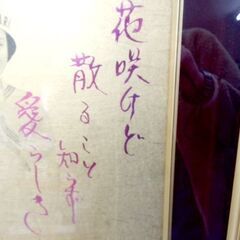 花咲けど
散ること知らず
愛らしさ